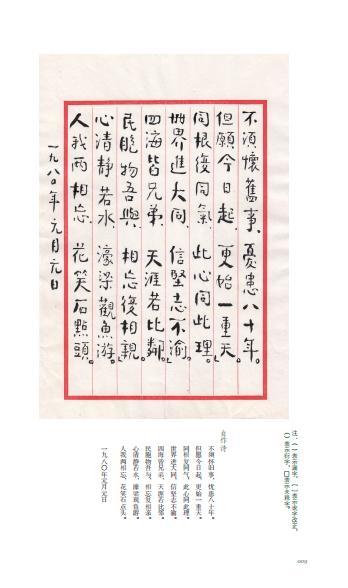 不須懷舊事，憂患八十年。
但願今日起，更始一重天。
同根復同氣，此心同此理。
世界進大同，信堅志不渝。
四海皆兄弟，天涯若比鄰。
民胞物吾與，相忘復相親。
心清靜若水，濠梁觀魚游。
人我兩相忘，花笑石點頭。
一九八〇年元月元日
自作诗
不须怀旧事，忧患八十年。
但愿今日起，更始一重天。
同根复同气，此心同此理。
世界进大同，信坚志不渝。
四海皆兄弟，天涯若比邻。
民胞物吾与，相忘复相亲。
心清静若水，濠梁观鱼游。
人我两相忘，花笑石点头。
一九八〇年元月元日